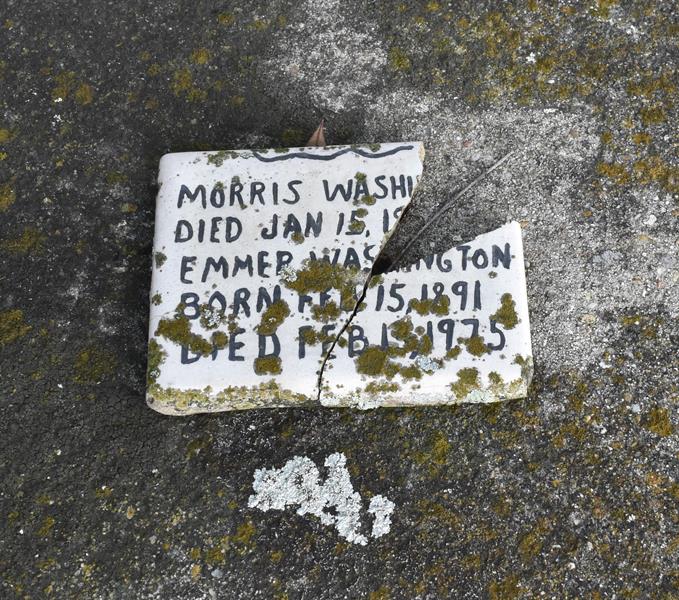 MORRIS WASHI
DIED JAN 15, 19
EMMER WASHINGTON
BORN FEB 15, 1891
DIED FEB 15, 1975